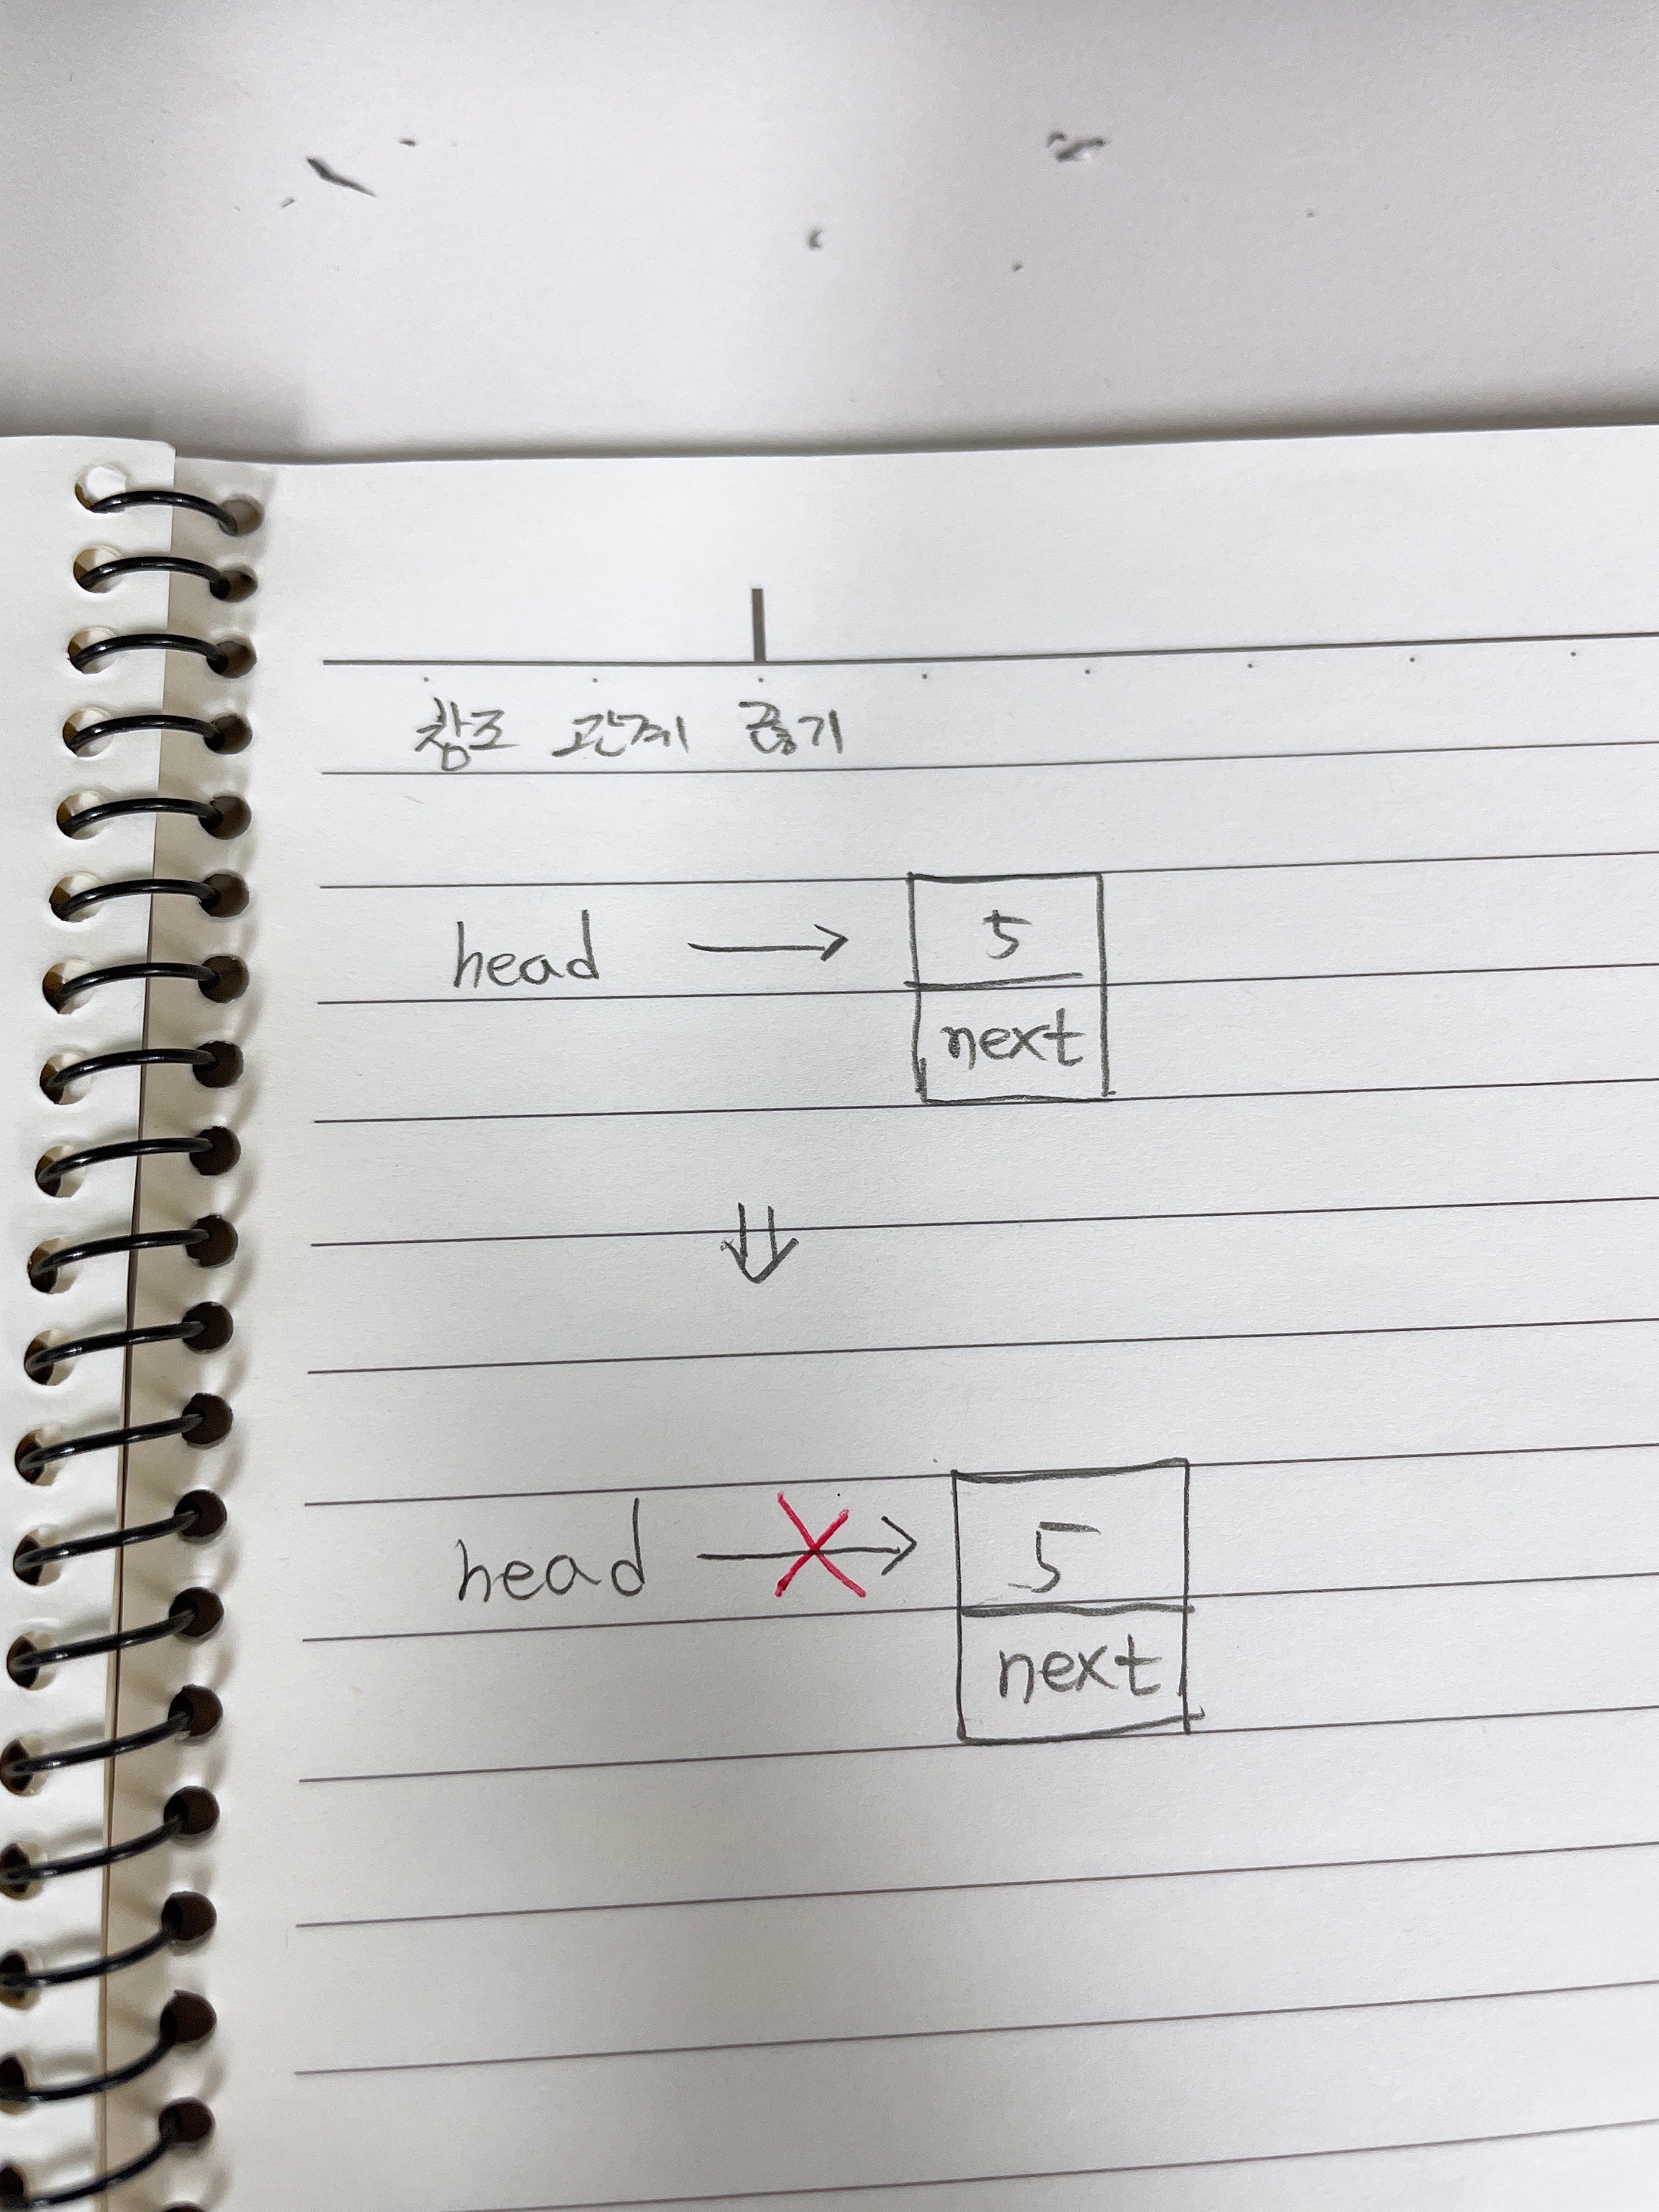 참조 관계 끊기
head → 5
next
⇓
head → 5
next